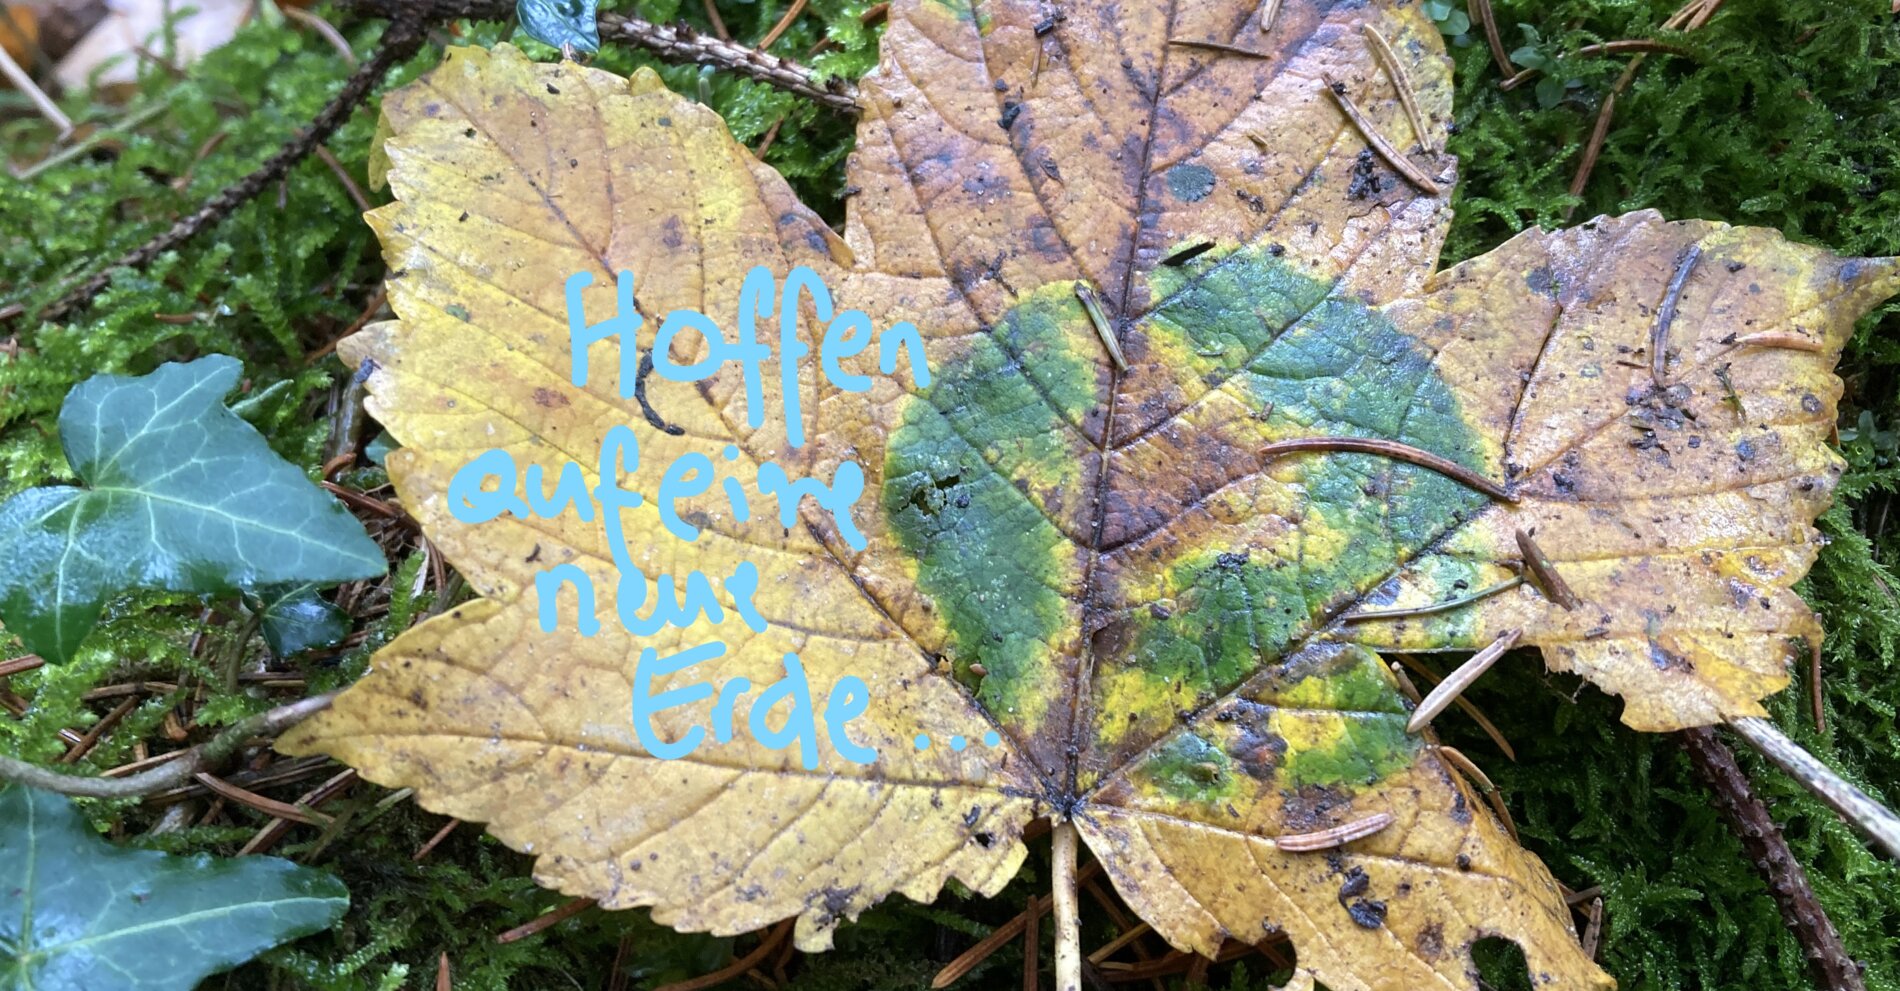 Hoffen
auf eine
neue
Erde ...